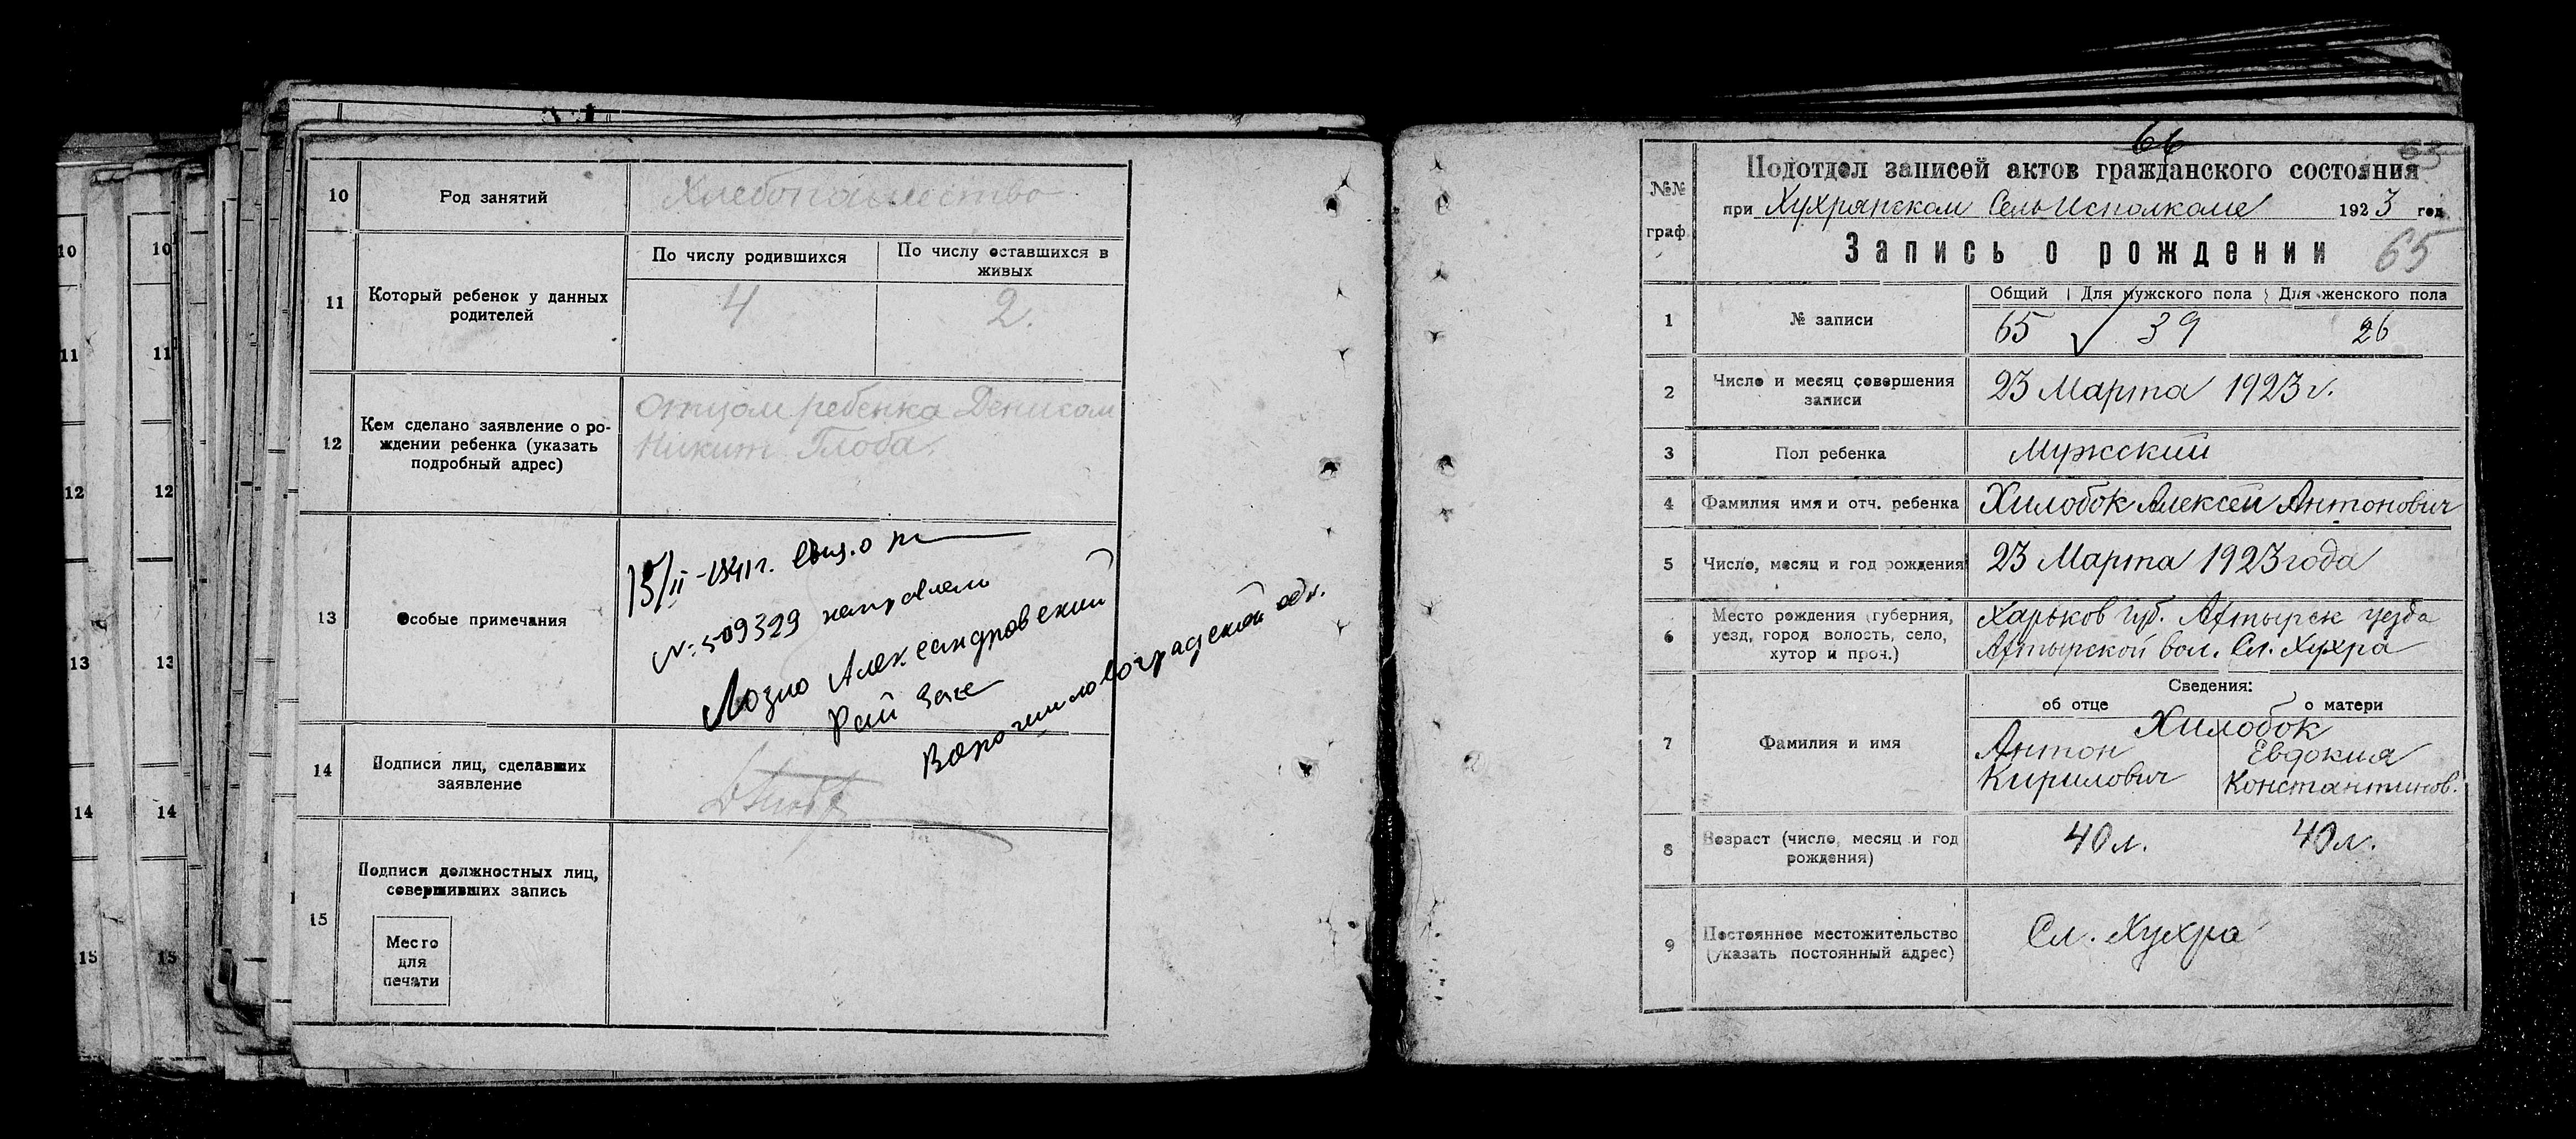 10 Род занятий Хлебопашество
11 Который ребенок у данных
родителей
По числу родившихся
По числу оставшихся в
живых
4 2.
12 Кем сделано заявление о ро-
ждении ребенка (указать
подробный адрес)
Отцом ребенка Денисом
Никит Глоба.
13 Особые примечания
15/II-1941 г. свид. о
№ 509329 направлен
Лозно Александровский
Рай Загс
Ворошиловоградской обл.
14 Подписи лиц, сделавших
заявление
15 Подписи должностных лиц,
совершивших запись
Место
для
печати
10 10
11 11
12 12
13 13
14 14
15 15
66 63
№№
граф
Подотдел записей актов гражданского состояния
при Хухрянском Сельисполкоме 1923 год
Запись о рождении 65
1 № записи
Общий Для мужского пола Для женского пола
65 √ 39 26
2 Число и месяц совершения
записи
23 Марта 1923 г.
3 Пол ребенка Мужский
4 Фамилия имя и отч. ребенка Хилобок Алексей Антонович
5 Число, месяц и год рождения 23 Марта 1923 года
6 Место рождения (губерния,
уезд, город волость, село,
хутор и проч.)
Харьков губ. Ахтырск уезда
Ахтырской вол. Сл. Хухра
7 Фамилия и имя
Сведения:
об отце о матери
Хилобок
Антон Евдокия
Кирилович Константинов.
8 Возраст (число, месяц и год
рождения)
40 л. 40 л.
9 Постоянное местожительство
(указать постоянный адрес)
Сл. Хухра